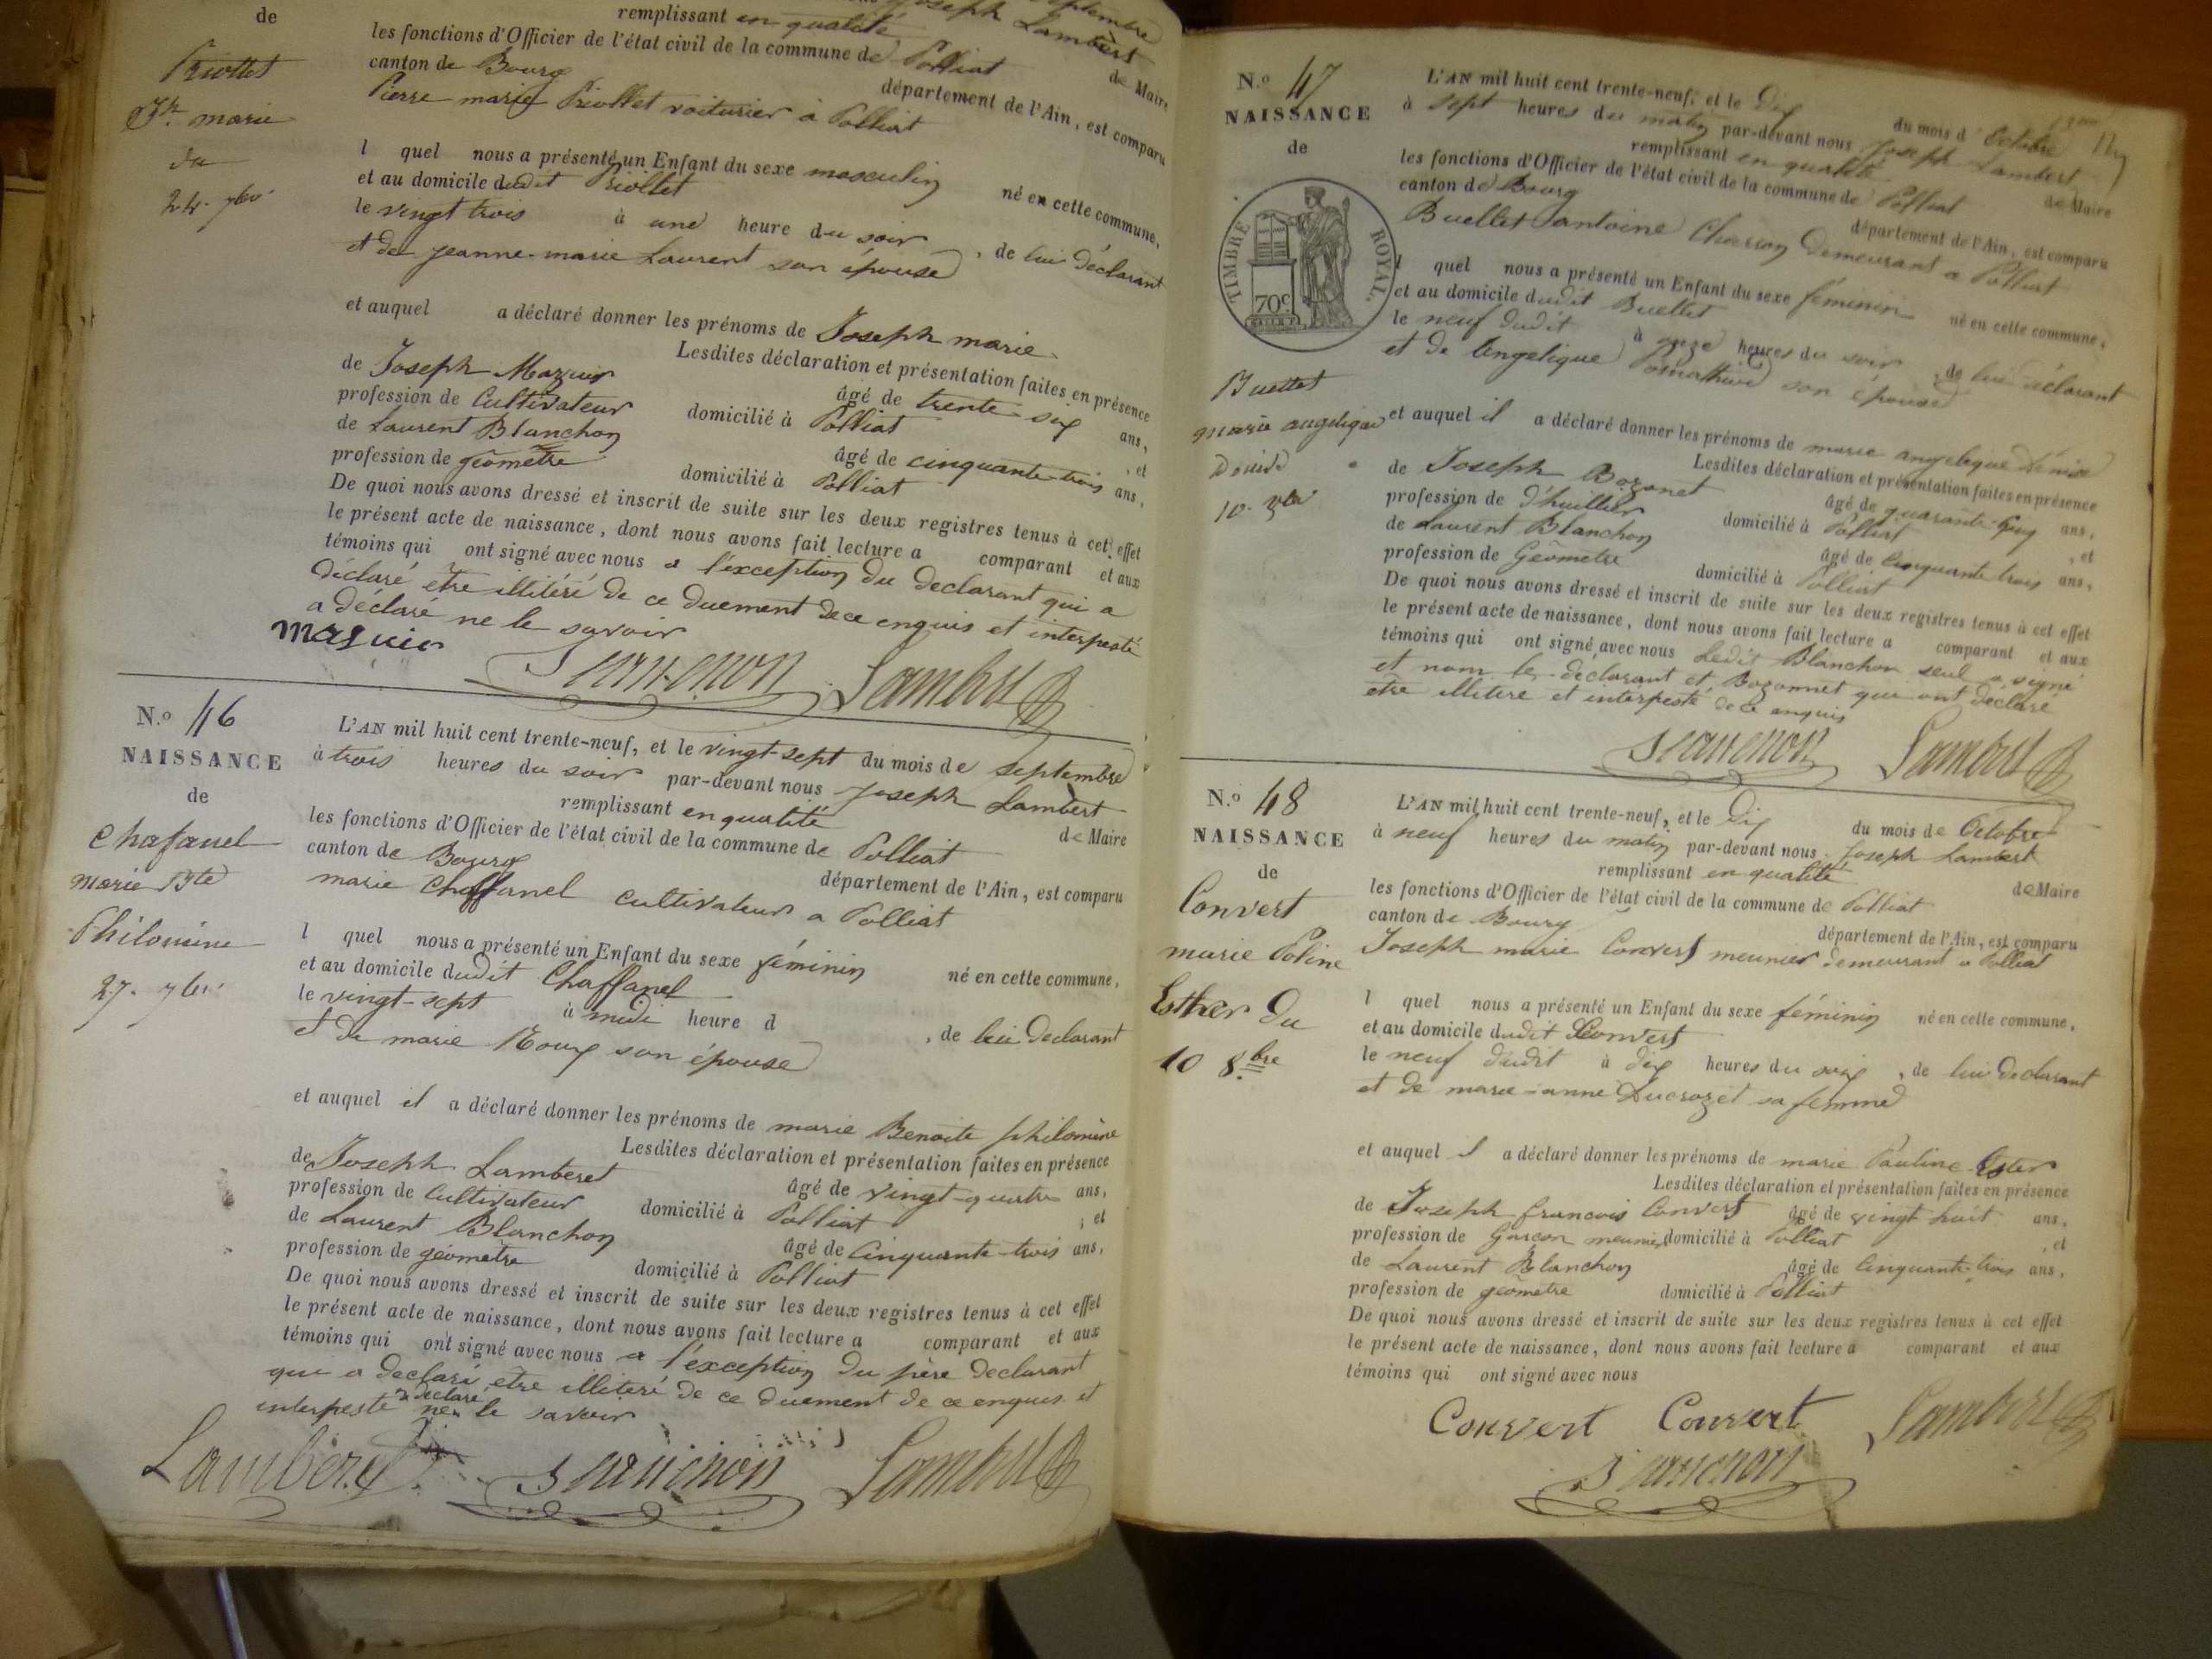 de
Priollet
Jh. marie
du
24. 7bre
septembre
Joseph Lambert
remplissant en qualité de Maire
les fonctions d'Officier de l'état civil de la commune de Polliat
canton de Bourg département de l'Ain, est comparu
Pierre marie Priollet voiturier à Polliat
l quel nous a présenté un Enfant du sexe masculin né en cette commune,
et au domicile dudit Priollet
le vingt trois à une heure du soir, de lui déclarant
et de jeanne-marie Laurent son épouse
et auquel a déclaré donner les prénoms de Joseph marie
Lesdites déclaration et présentation faites en présence
de Joseph Mazuir âgé de trente-six ans,
profession de Cultivateur domicilié à Polliat, et
de Laurent Blanchon âgé de cinquante-trois ans,
profession de géomètre domicilié à Polliat
De quoi nous avons dressé et inscrit de suite sur les deux registres tenus à cet effet
le présent acte de naissance, dont nous avons fait lecture a comparant et aux
témoins qui ont signé avec nous a l'exception du declarant qui a
déclaré être illitéré de ce duement de ce enquis et interpesté
a déclaré ne le savoir
masuir Lambert
N.º 46
NAISSANCE
de
Chafanel
marie Bte
Philomine
27. 7bre
L'AN mil huit cent trente-neuf, et le vingt-sept du mois de septembre
à trois heures du soir par-devant nous Joseph Lambert
remplissant en qualité de Maire
les fonctions d'Officier de l'état civil de la commune de Polliat
canton de Bourg département de l'Ain, est comparu
marie Chaffanel cultivateur a Polliat
l quel nous a présenté un Enfant du sexe féminin né en cette commune,
et au domicile dudit Chaffanel
le vingt-sept à midi heure d , de lui Declarant
et de marie Roux son épouse
et auquel il a déclaré donner les prénoms de marie Benoite philomène
Lesdites déclaration et présentation faites en présence
de Joseph Lamberet âgé de vingt-quatre ans,
profession de Cultivateur domicilié à Polliat, et
de Laurent Blanchon âgé de Cinquante-trois ans,
profession de géomètre domicilié à Polliat
De quoi nous avons dressé et inscrit de suite sur les deux registres tenus à cet effet
le présent acte de naissance, dont nous avons fait lecture a comparant et aux
témoins qui ont signé avec nous a l'exception du père declarant
qui a declaré etre illiteré de ce duement de ce enquis et
interpesté a declaré ne le savoir
Lamberet Lambert
N.º 47
NAISSANCE
de
TIMBRE ROYAL.
70c
Buellet
marie angelique
Denise
10. 8bre
L'AN mil huit cent trente-neuf, et le Dix du mois d'Octobre
à sept heures du matin par-devant nous Joseph Lambert
remplissant en qualité de Maire
les fonctions d'Officier de l'état civil de la commune de Polliat
canton de Bourg département de l'Ain, est comparu
Buellet antoine Charron Demeurant a Polliat
l quel nous a présenté un Enfant du sexe féminin né en cette commune,
et au domicile dudit Buellet
le neuf dudit à onze heures du soir, de lui déclarant
et de Angelique Pomathios son épouse
et auquel il a déclaré donner les prénoms de marie angelique Denise
Lesdites déclaration et présentation faites en présence
de Joseph Bozonet âgé de quarante-cinq ans,
profession de d'huillier domicilié à Polliat, et
de Laurent Blanchon âgé de Cinquante trois ans,
profession de Géometre domicilié à Polliat
De quoi nous avons dressé et inscrit de suite sur les deux registres tenus à cet effet
le présent acte de naissance, dont nous avons fait lecture a comparant et aux
témoins qui ont signé avec nous Ledit Blanchon seul a signé
et nom le déclarant et Bozonnet qui ont déclaré
etre illitere et interpesté de ce enquis
Lambert
N.º 48
NAISSANCE
de
Convert
marie Poline
Esther Du
10 8.bre
L'AN mil huit cent trente-neuf, et le Dix du mois de Octobre
à neuf heures du matin par-devant nous Joseph Lambert
remplissant en qualité de Maire
les fonctions d'Officier de l'état civil de la commune de Polliat
canton de Bourg département de l'Ain, est comparu
Joseph marie Convert meunier demeurant a Polliat
l quel nous a présenté un Enfant du sexe féminin né en cette commune,
et au domicile dudit Convert
le neuf dudit à dix heures du soir, de lui declarant
et de marie-anne Ducrozet sa femme
et auquel il a déclaré donner les prénoms de marie Pauline Ester
Lesdites déclaration et présentation faites en présence
de Joseph francois Convert âgé de vingt huit ans,
profession de Garcon meunier domicilié à Polliat, et
de Laurent Blanchon âgé de Cinquante-trois ans,
profession de géometre domicilié à Polliat
De quoi nous avons dressé et inscrit de suite sur les deux registres tenus à cet effet
le présent acte de naissance, dont nous avons fait lecture a comparant et aux
témoins qui ont signé avec nous
Convert Convert Lambert